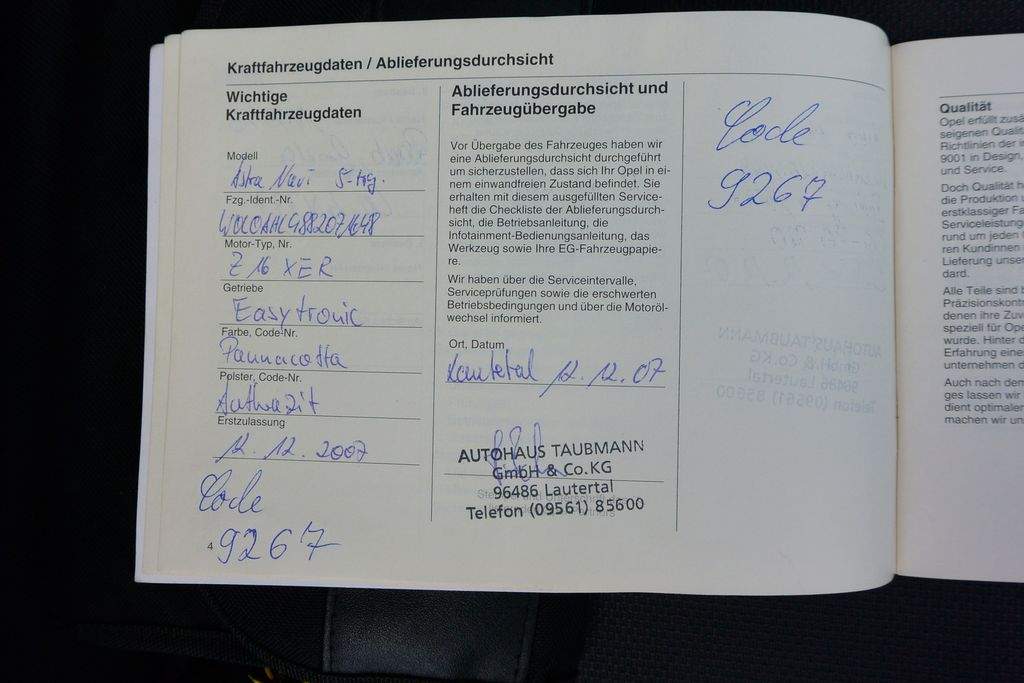 Kraftfahrzeugdaten / Ablieferungsdurchsicht
Wichtige
Kraftfahrzeugdaten
Modell
Astra Navi 5-trg.
Fzg.-Ident.-Nr.
Motor-Typ, Nr.
Z 16 XER
Getriebe
Easytronic
Farbe, Code-Nr.
Pannacotta
Polster, Code-Nr.
Anthrazit
Erstzulassung
12. 12. 2007
Code
9267
4
Ablieferungsdurchsicht und
Fahrzeugübergabe
Vor Übergabe des Fahrzeuges haben wir
eine Ablieferungsdurchsicht durchgeführt
um sicherzustellen, dass sich Ihr Opel in ei-
nem einwandfreien Zustand befindet. Sie
erhalten mit diesem ausgefüllten Service-
heft die Checkliste der Ablieferungsdurch-
sicht, die Betriebsanleitung, die
Infotainment-Bedienungsanleitung, das
Werkzeug sowie Ihre EG-Fahrzeugpapie-
re.
Wir haben über die Serviceintervalle,
Serviceprüfungen sowie die erschwerten
Betriebsbedingungen und über die Motoröl-
wechsel informiert.
Ort, Datum
Lautertal 12. 12. 07
AUTOHAUS TAUBMANN
GmbH & Co.KG
96486 Lautertal
Telefon (09561) 85600
Code
9267
Qualität
Opel erfüllt zusä
seigenen Qualit
Richtlinien der i
9001 in Design,
und Service.
Doch Qualität h
die Produktion
erstklassiger Fa
Serviceleistung
rund um jeden
ren Kundinnen
Lieferung unse
dard.
Alle Teile sind b
Präzisionskont
denen ihre Zuv
speziell für Ope
wurde. Hinter d
Erfahrung eine
unternehmen d
Auch nach dem
ges lassen wir
dient optimale
machen wir un